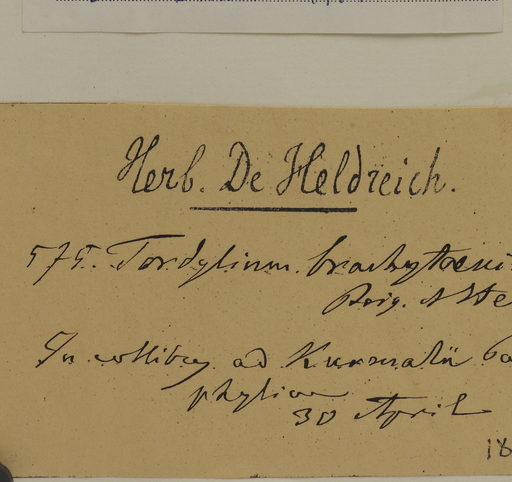 Herb. De Heldreich.
575. Tordylium brachytaeni
Boiss. & He
In collibus ad Kurmalü Pa
phyliae
30 April
18